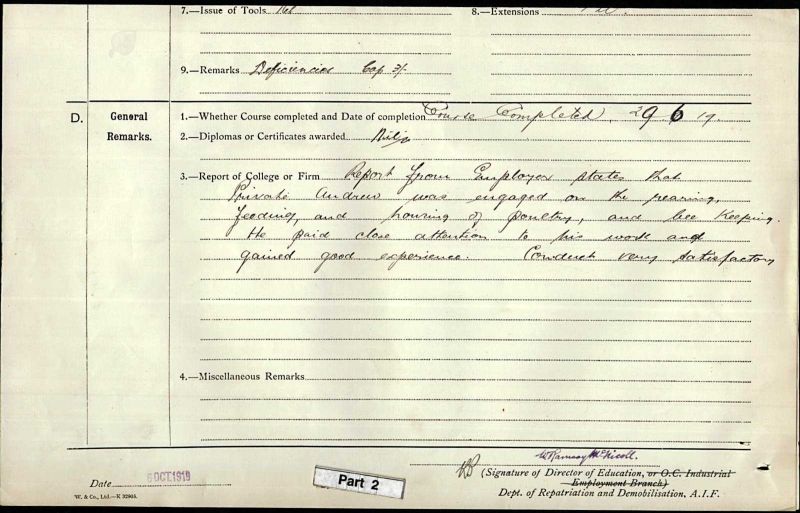 7.—Issue of Tools Nil 8.—Extensions Nil.
9.—Remarks Deficiencies Cap 3/-
D. General Remarks.
1.—Whether Course completed and Date of completion Course Completed. 29 6 19.
2.—Diplomas or Certificates awarded Nil
3.—Report of College or Firm Report from Employer states that
Private Andrew was engaged on the rearing,
feeding, and housing of poultry, and bee keeping.
He paid close attention to his work and
gained good experience. Conduct very satisfactory
4.—Miscellaneous Remarks
W Ramsay McNicoll.
(Signature of Director of Education, or O.C. Industrial
Employment Branch)
Date 6 OCT 1919
Part 2
Dept. of Repatriation and Demobilisation, A.I.F.
W. & Co., Ltd.—K 32905.